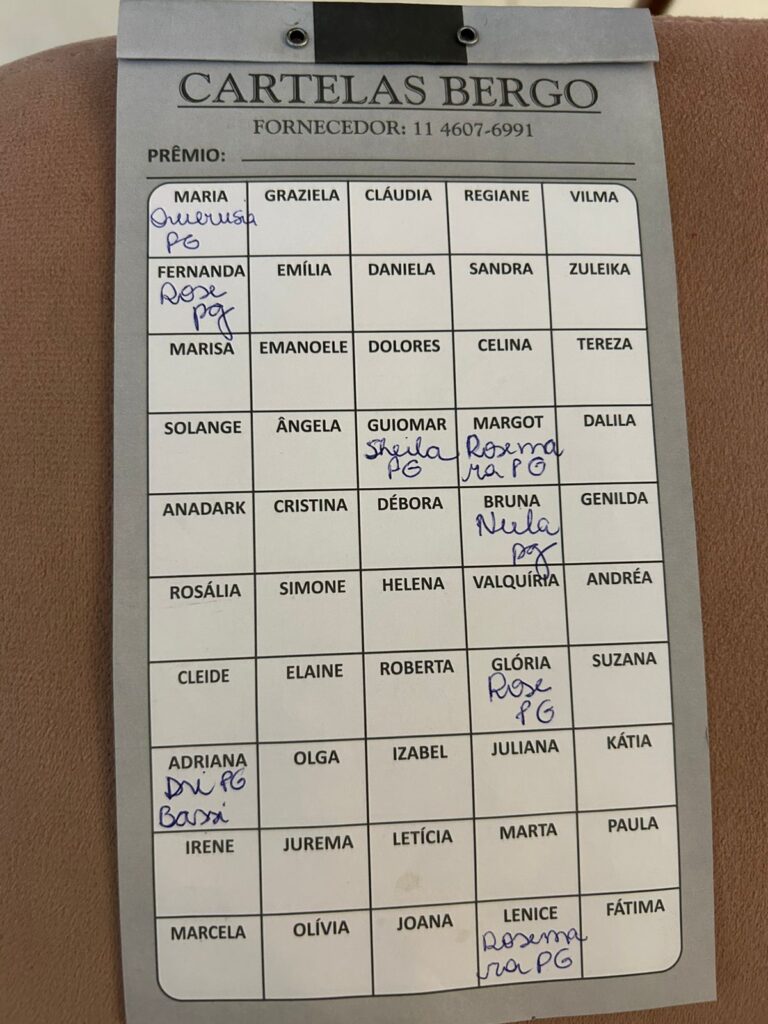 CARTELAS BERGO
FORNECEDOR: 11 4607-6991
PRÊMIO:
MARIA GRAZIELA CLÁUDIA REGIANE VILMA
PG
FERNANDA EMÍLIA DANIELA SANDRA ZULEIKA
Rose
pg
MARISA EMANOELE DOLORES CELINA TEREZA
SOLANGE ÂNGELA GUIOMAR MARGOT DALILA
Sheila Rosema
PG ra PG
ANADARK CRISTINA DÉBORA BRUNA GENILDA
pg
ROSÁLIA SIMONE HELENA VALQUÍRIA ANDRÉA
CLEIDE ELAINE ROBERTA GLÓRIA SUZANA
Rose
PG
ADRIANA OLGA IZABEL JULIANA KÁTIA
Dri PG
Bassi
IRENE JUREMA LETÍCIA MARTA PAULA
MARCELA OLÍVIA JOANA LENICE FÁTIMA
Rosema
ra PG